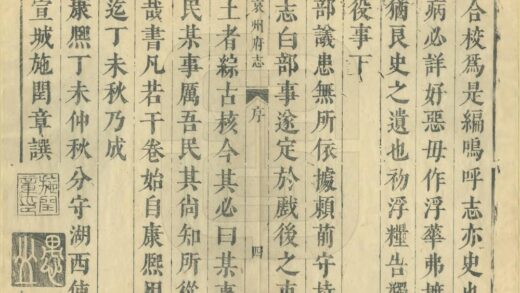 合校爲是編嗚呼志亦史也
病必詳好惡毋作浮華弗
猶良史之遺也初浮糧告
役事下
部議患無所依據頼前守持
志白部事遂定於戲後之吏
袁州府志
序
四
土者綜古核今其必曰某事
民某事厲吾民其尚知所從
哉書凡若干卷始自康熈
迄丁未秋乃成
康熈丁未仲秋分守湖西使
宣城施閏章譔
施閏章印